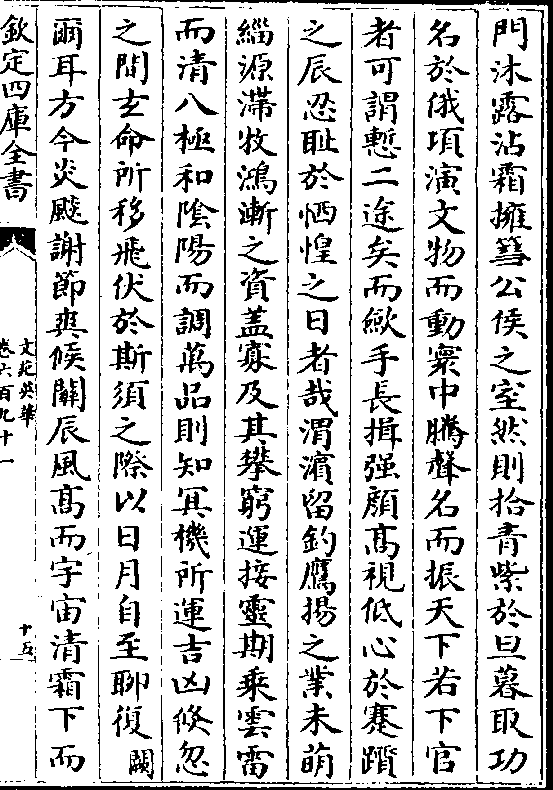 門沐露沾霜擁篲公侯之室然則拾青紫於旦暮取功
名於俄頃演文物而動寰中騰聲名而振天下若下官
者可謂慙二途矣而歛手長揖强顔髙視低心於蹇躓
之辰忍耻於恓惶之日者哉渭濵留釣鷹揚之業未萌
緇源滯牧鴻漸之資盖寡及其攀窮運接靈期乘雲雷
而清八極和陰陽而調萬品則知冥機所運吉凶倐忽
之間玄命所移飛伏於斯須之際以日月自至聊復闕
爾耳方今炎飈謝節爽候闗辰風髙而宇宙清霜下而
欽定四庫全書
文苑英華
卷六百九十一
十五